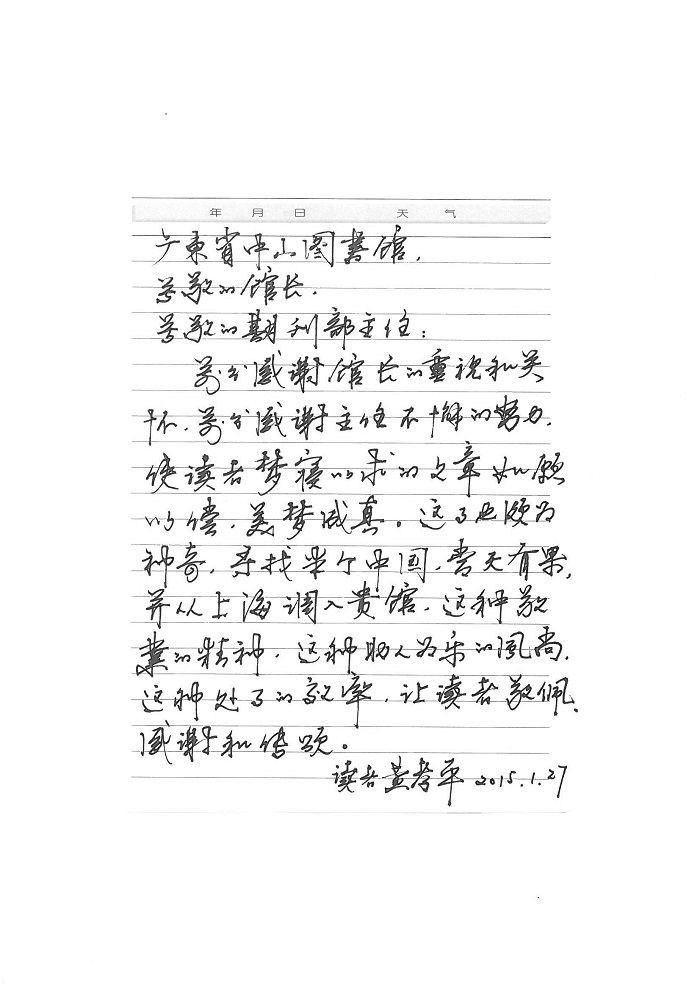 年 月 日 天 气
广東省中山图書馆，
尊敬的馆长，
尊敬的期刊部主任：
万分感谢馆长的重视和关
怀，万分感谢主任不懈的努力，
使读者梦寐以求的文章如愿
以偿，美梦成真。这事也颇为
神奇，寻找半个中国，
有果，
并从上海调入贵馆，这种敬
業的精神，这种助人为乐的風尚，
这种处事的效率，让读者敬佩、
感谢和传颂。
读者黄孝平 2015.1.27